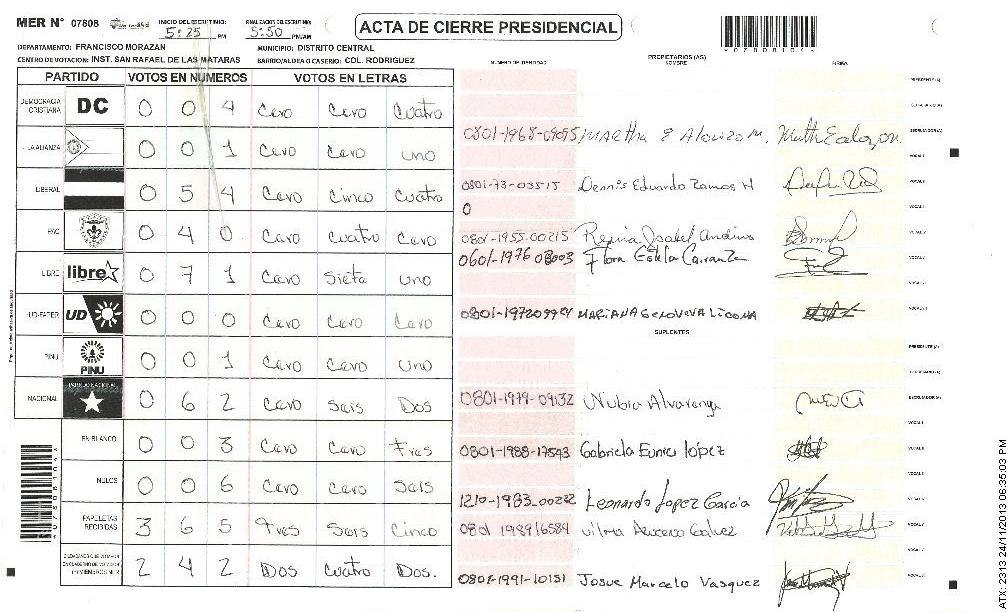 MER N° 07808 INICIO DEL ESCRUTINIO: 5:25 PM FINALIZACION DEL ESCRUTINIO: 5:50 PM/AM ACTA DE CIERRE PRESIDENCIAL
DEPARTAMENTO: FRANCISCO MORAZAN MUNICIPIO: DISTRITO CENTRAL
CENTRO DE VOTACION: INST. SAN RAFAEL DE LAS MATARAS BARRIO/ALDEA O CASERIO: COL. RODRIGUEZ
NUMERO DE IDENTIDAD PROPIETARIOS (AS) NOMBRE FIRMA
PARTIDO VOTOS EN NUMEROS VOTOS EN LETRAS
DEMOCRACIA CRISTIANA DC 0 0 4 Cero Cero Cuatro
LA ALIANZA 0 0 1 Cero Cero uno
LIBERAL 0 5 4 Cero Cinco Cuatro
PAC 0 4 0 Cero Cuatro Cero
LIBRE libre 0 7 1 Cero Siete uno
UD-FAPER UD 0 0 0 Cero Cero Cero
PINU PINU 0 0 1 Cero Cero uno
NACIONAL PARTIDO NACIONAL 0 6 2 Cero Seis Dos
EN BLANCO 0 0 3 Cero Cero Tres
NULOS 0 0 6 Cero Cero Seis
PAPELETAS RECIBIDAS 3 6 5 Tres Seis Cinco
CIUDADANOS QUE VOTARON EN CUADERNO DE VOTACION 2 4 2 Dos Cuatro Dos.
0801-1968-09055 MARTHA E Alonzo M.
0801-73-03515 Dennis Eduardo Ramos H
0
0801-1955-00215 Reina Isabel Andino
0601-1976 03003 Flora Estela Carranza
0801-197209924 MARIANA GENOVEVA LICONA
SUPLENTES
0801-1979-09132 Nubia Alvarenga
0801-1988-17593 Gabriela Eunice López
1210-1983-00232 Leonardo Lopez Garcia
0801 198916584 Vilma Azucena Galvez
0801-1991-10151 Josue Marcelo Vasquez
ATX: 2313 24/11/2013 06:35:03 PM